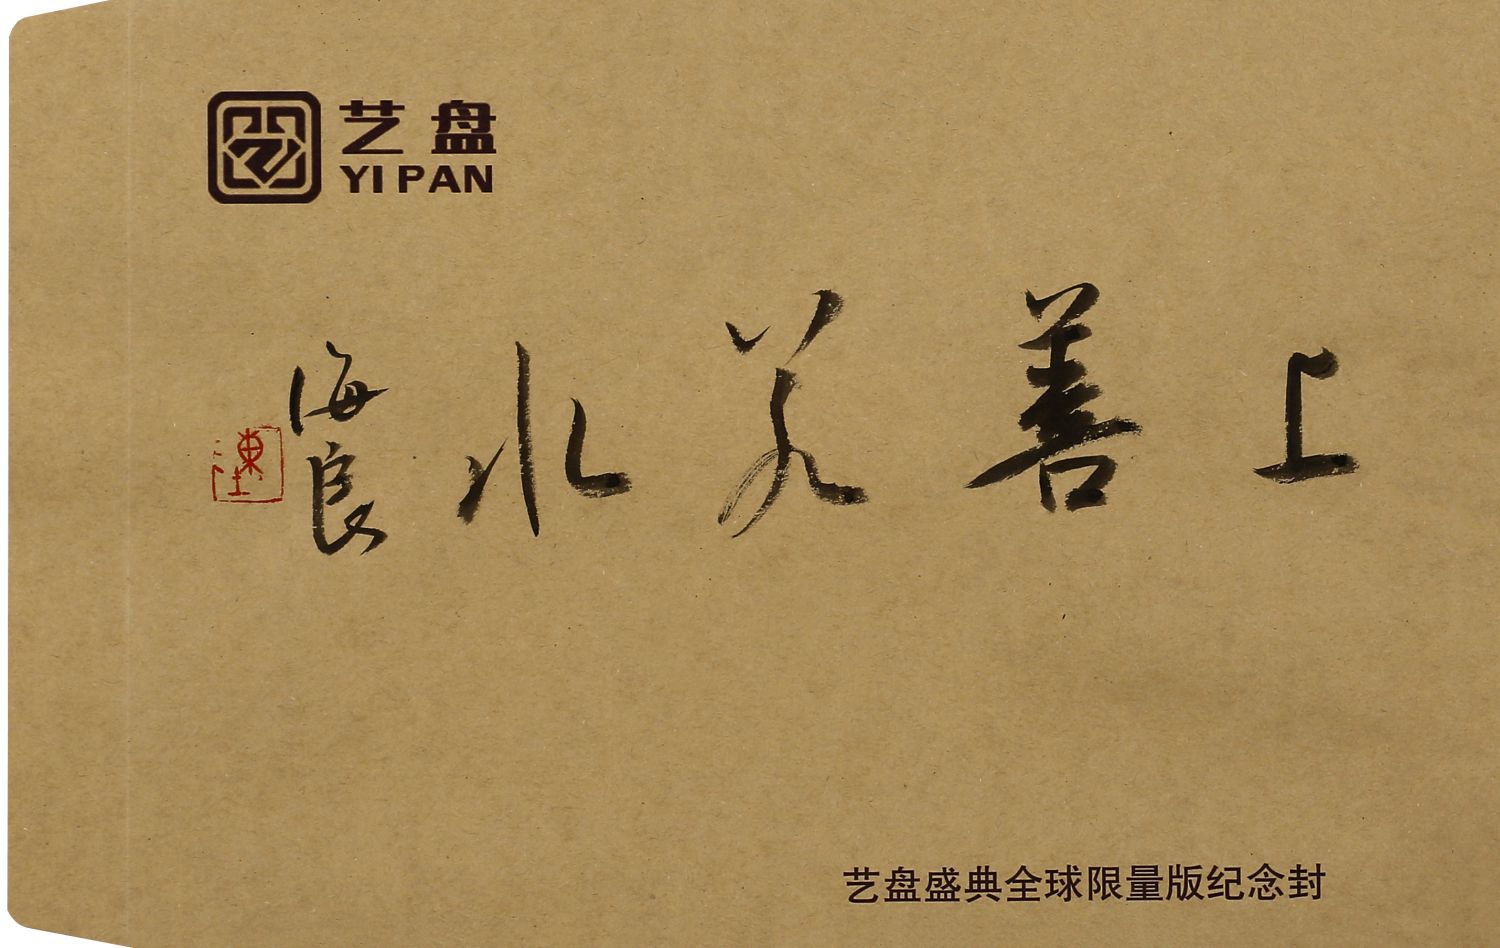 艺盘
YI PAN
上善若水
海良
艺盘盛典全球限量版纪念封